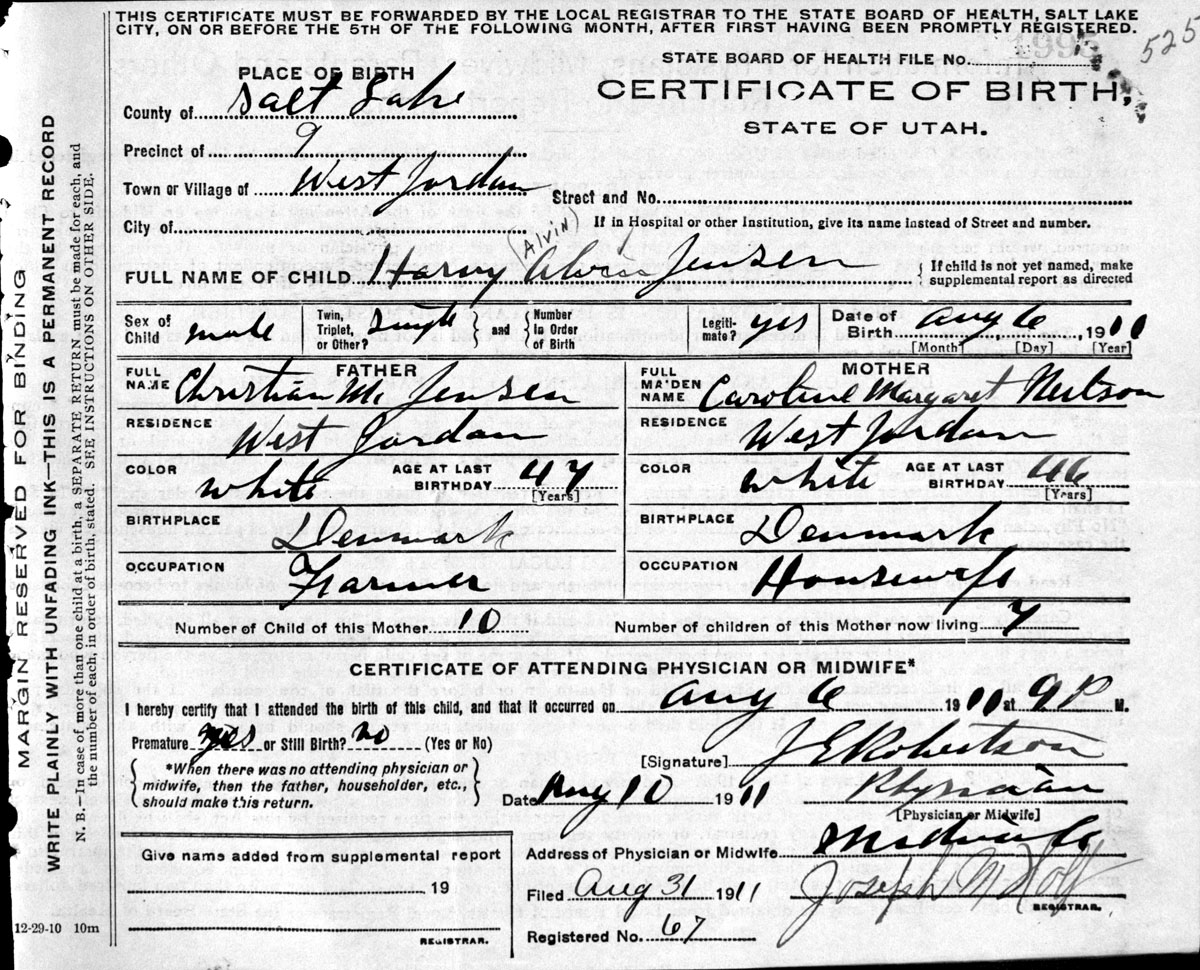 THIS CERTIFICATE MUST BE FORWARDED BY THE LOCAL REGISTRAR TO THE STATE BOARD OF HEALTH, SALT LAKE
CITY, ON OR BEFORE THE 5TH OF THE FOLLOWING MONTH, AFTER FIRST HAVING BEEN PROMPTLY REGISTERED.
525
STATE BOARD OF HEALTH FILE No.
CERTIFICATE OF BIRTH,
STATE OF UTAH.
PLACE OF BIRTH
County of Salt Lake
Precinct of 9
Town or Village of West Jordan
Street and No.
City of
If in Hospital or other Institution, give its name instead of Street and number.
(ALVIN)
FULL NAME OF CHILD Harvy Alvin Jensen
If child is not yet named, make supplemental report as directed
Sex of Child male
Twin, Triplet, or Other? Single and Number in Order of Birth
Legitimate? yes
Date of Birth Aug 6, 1911
[Month] [Day] [Year]
FATHER
FULL NAME Christian M. Jensen
RESIDENCE West Jordan
COLOR white AGE AT LAST BIRTHDAY 47
[Years]
BIRTHPLACE Denmark
OCCUPATION Farmer
MOTHER
FULL MAIDEN NAME Caroline Margaret Neilson
RESIDENCE West Jordan
COLOR white AGE AT LAST BIRTHDAY 46
[Years]
BIRTHPLACE Denmark
OCCUPATION Housewife
Number of Child of this Mother 10 Number of children of this Mother now living 7
CERTIFICATE OF ATTENDING PHYSICIAN OR MIDWIFE*
I hereby certify that I attended the birth of this child, and that it occurred on Aug 6 1911 at 9 P M.
Premature or Still Birth? no (Yes or No)
*When there was no attending physician or
midwife, then the father, householder, etc.,
should make this return.
[Signature] J E Robertson
Date Aug 10 1911 Physician
[Physician or Midwife]
Address of Physician or Midwife Midvale
Filed Aug 31 1911 Joseph M Holt
REGISTRAR.
Registered No. 67
Give name added from supplemental report
19
REGISTRAR.
12-29-10 10m
MARGIN RESERVED FOR BINDING
WRITE PLAINLY WITH UNFADING INK—THIS IS A PERMANENT RECORD
N. B.—In case of more than one child at a birth, a SEPARATE RETURN must be made for each, and
the number of each, in order of birth, stated. SEE INSTRUCTIONS ON OTHER SIDE.